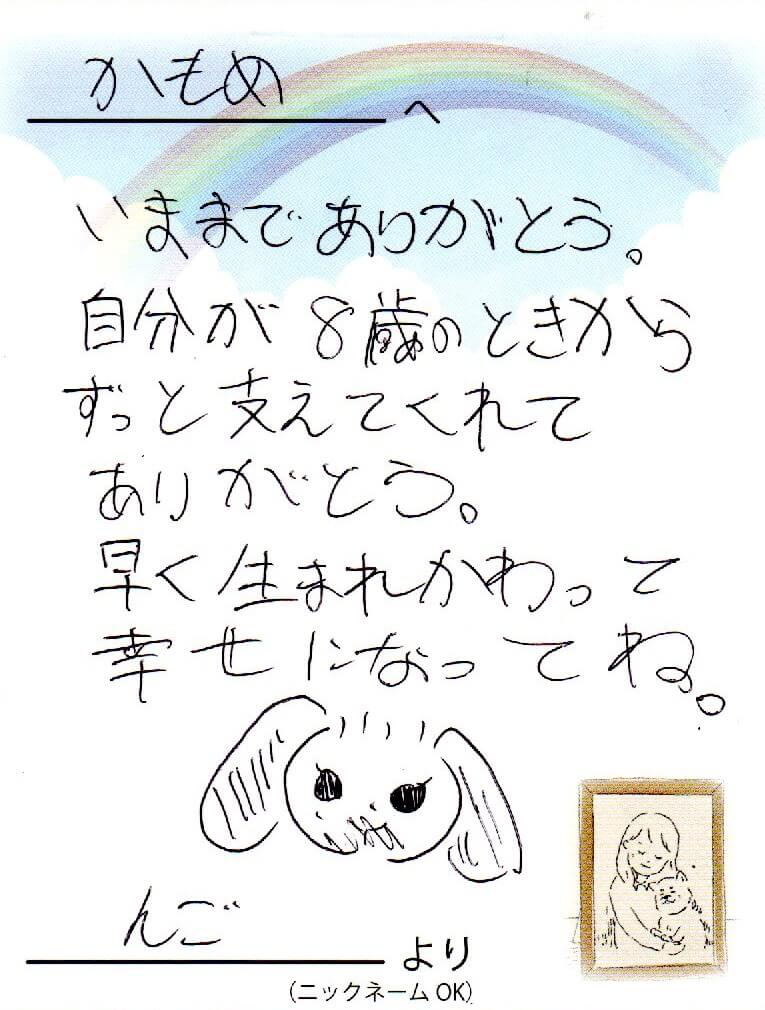 かもめ へ
いままでありがとう。
自分が8歳のときから
ずっと支えてくれて
ありがとう。
早く生まれかわって
幸せになってね。
んご より
(ニックネームOK)